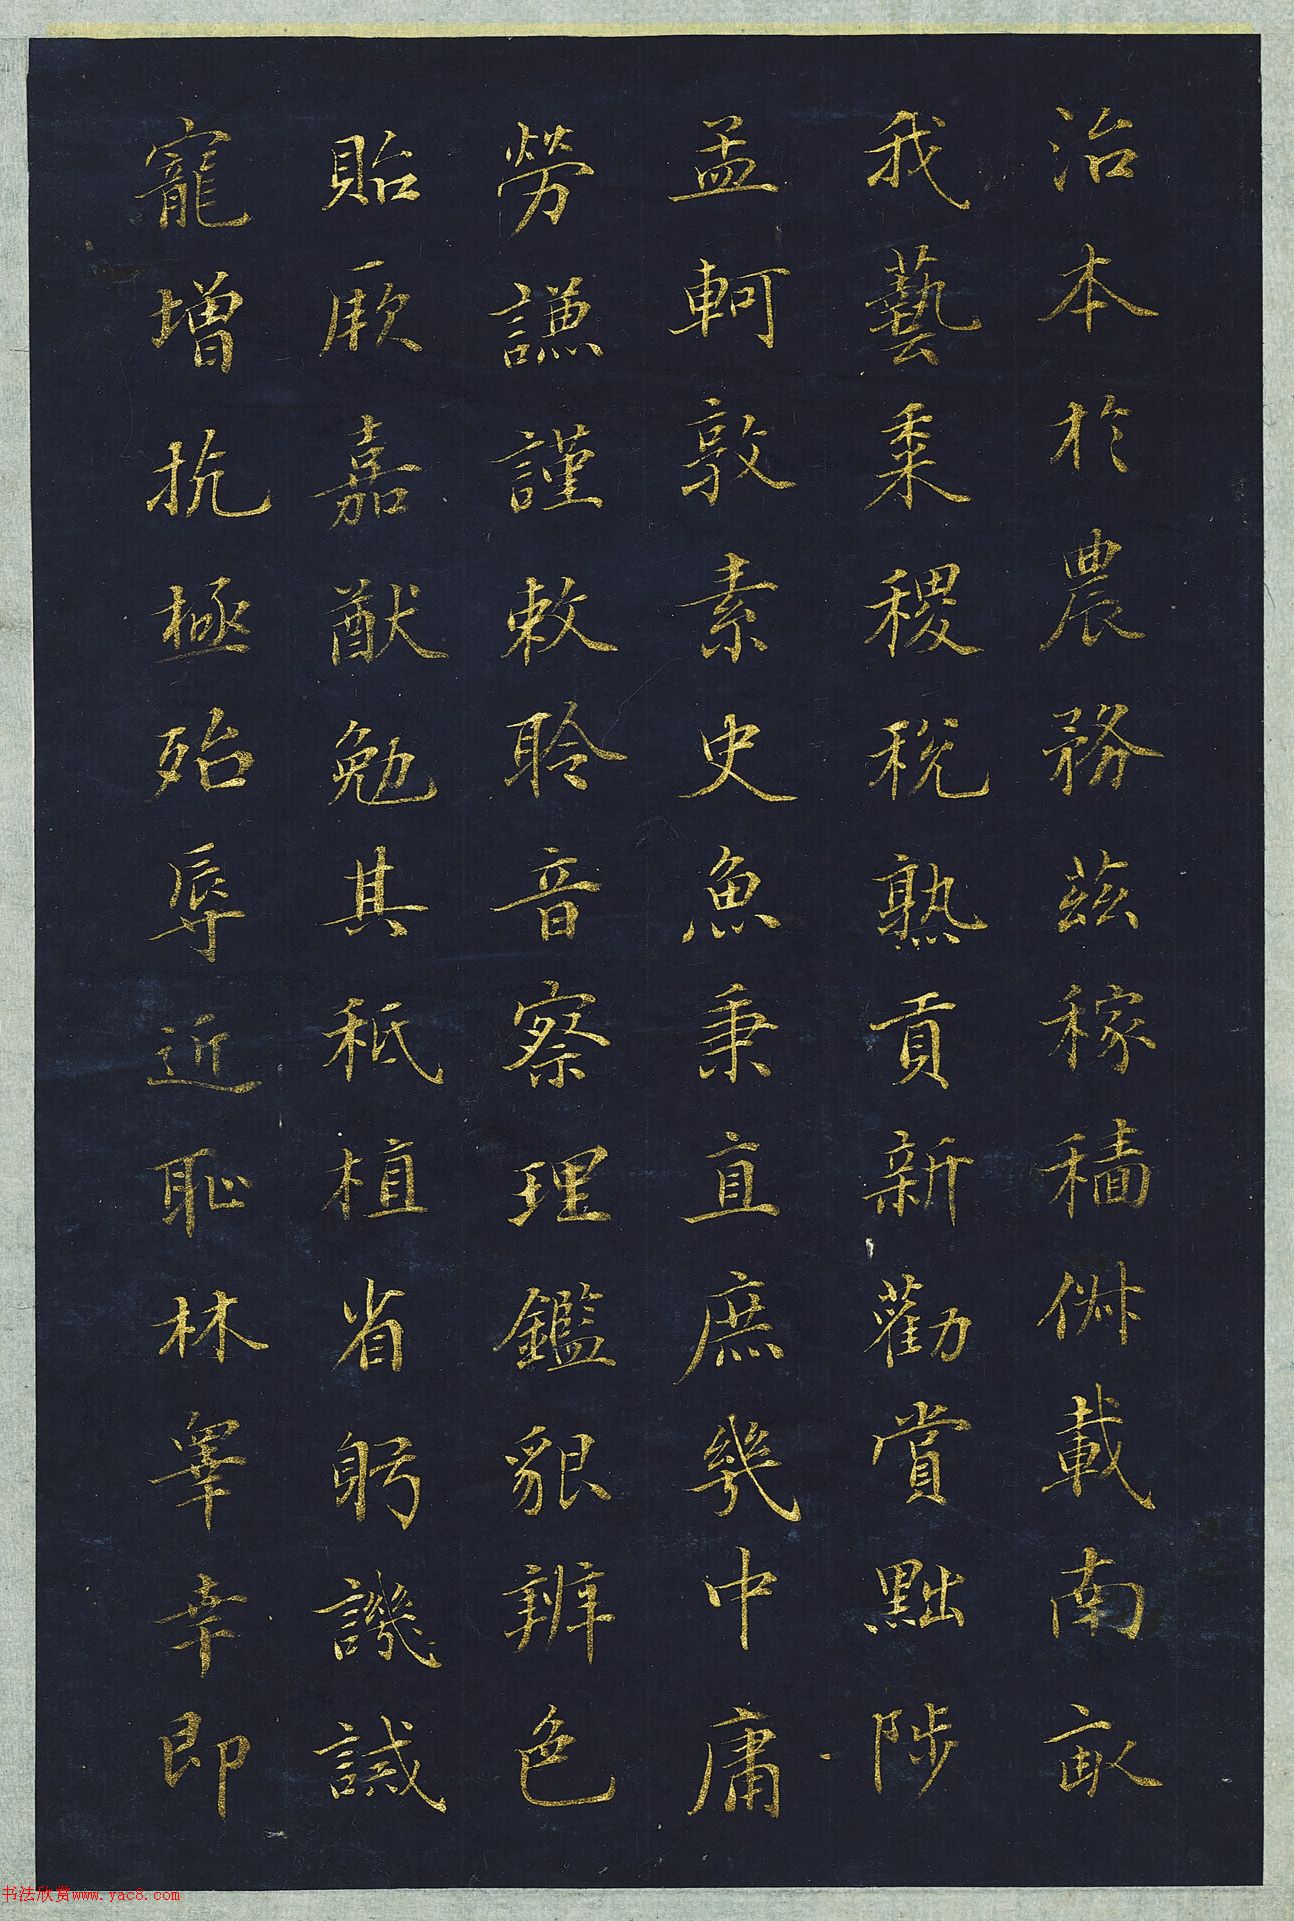 治本於農務茲稼穡俶載南畝
我藝黍稷稅熟貢新勸賞黜陟
孟軻敦素史魚秉直庶幾中庸
勞謙謹敕聆音察理鑑貌辨色
貽厥嘉猷勉其秖植省躬譏誡
寵增抗極殆辱近恥林睪幸即
书法欣赏www.yac8.com